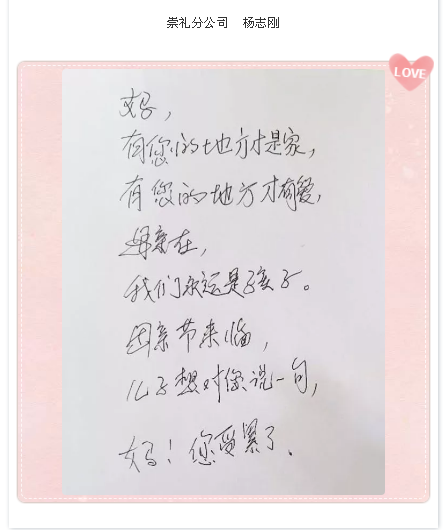 崇礼分公司 杨志刚
LOVE
妈，
有您的地方才是家，
有您的地方才有爱，
母亲在，
我们永远是孩子。
母亲节来临，
儿子想对您说一句，
妈！您受累了.